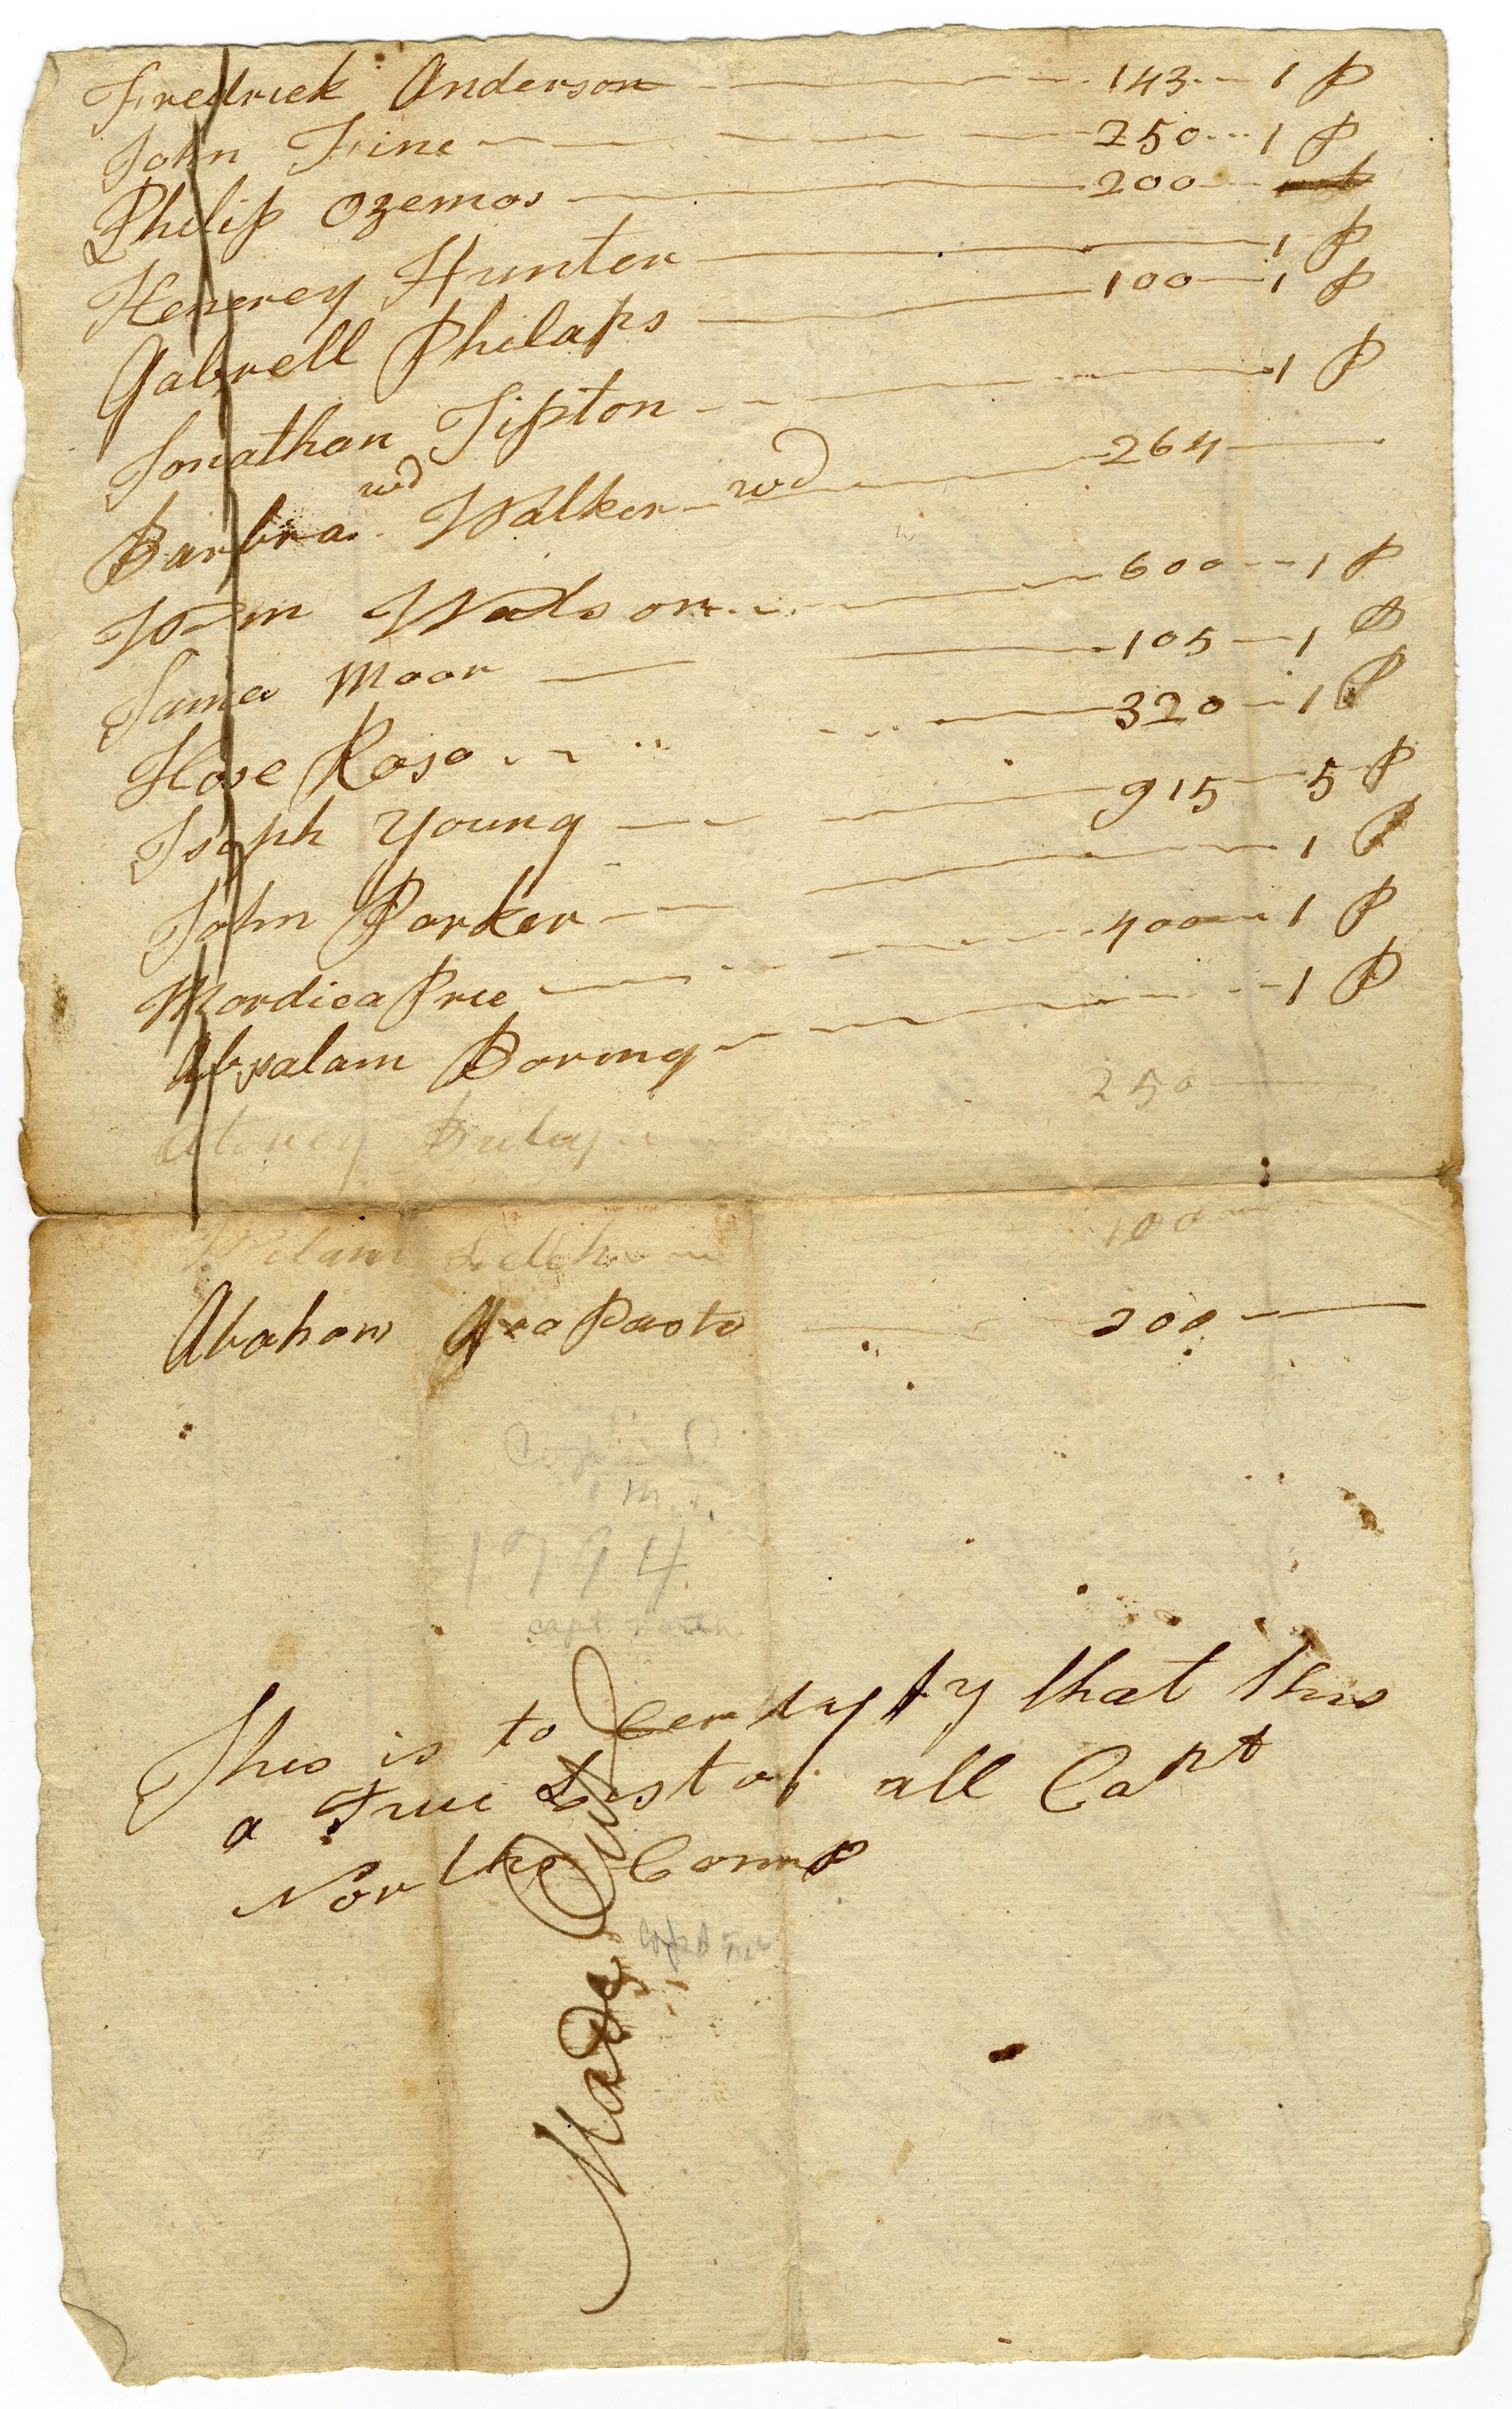 Fredrick Anderson 143 1 P
John Fine 250 1 P
Philip Ozemos 200
Henerey Hunter 1 P
Gabrell Philaps 100 1 P
Jonathan Tipton 1 P
Barbra wd Walker wd 264
Wm Watson 600 1 P
James Moor 105 1 P
Hose Rose 320 1 P
Joseph Young 915 5 P
John Parker 1 P
Mordica Price 400 1 P
Absalam Boring 1 P
250
100
Abaham 200
1794
This is to Certyfy that this
a True List of all Capt
Norths Comp